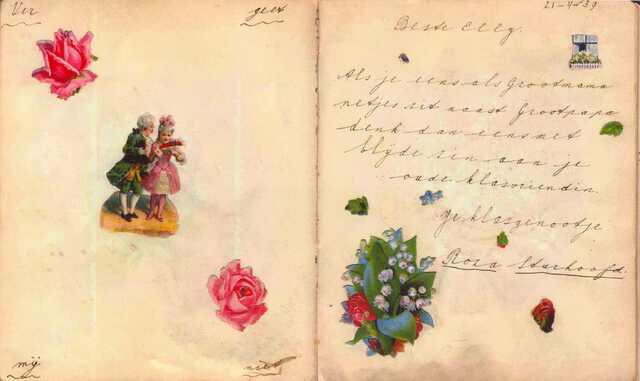 Ver geet
mij niet
21-4-39
Beste Elly.
Als je eens als Grootmama
netjes zit naast Grootpapa
denk dan eens met
blijde zin aan je
oude klasvriendin.
je klasgenootje
Rosa